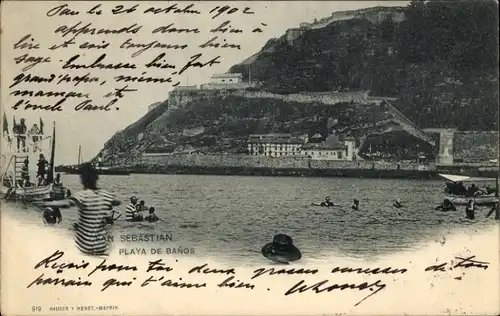 Pau le 26 octubre 1902
apprends donc bien à
lire et sois toujours bien
sage. Embrasse bien fort
grand'papa, mémé
maman, et
l'oncle Paul.
SAN SEBASTIAN
PLAYA DE BAÑOS
Reçois pour toi deux grosses caresses de ton
parrain qui t'aime bien.
919 HAUSER Y MENET.-MADRID